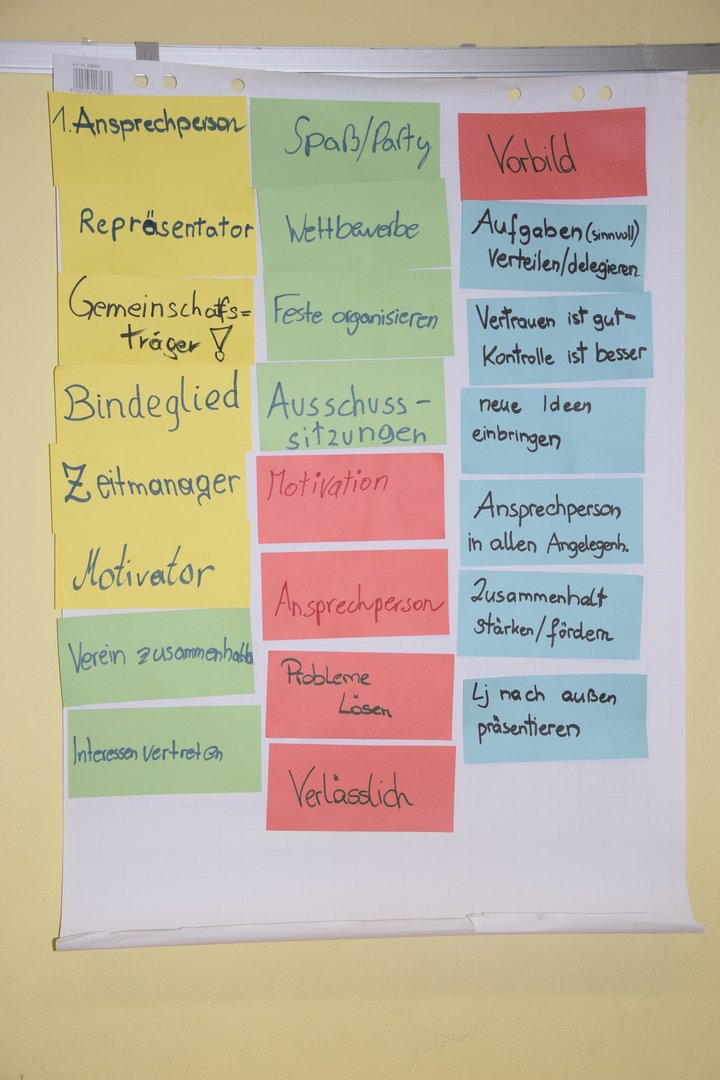 1. Ansprechperson
Repräsentator
Gemeinschafts=
träger!
Bindeglied
Zeitmanager
Motivator
Verein zusammenhalten
Interessen vertreten
Spaß/Party
Wettbewerbe
Feste organisieren
Ausschuss-
sitzungen
Motivation
Ansprechperson
Probleme
Lösen
Verlässlich
Vorbild
Aufgaben (sinnvoll)
verteilen/delegieren
Vertrauen ist gut-
Kontrolle ist besser
neue Ideen
einbringen
Ansprechperson
in allen Angelegenh.
Zusammenhalt
stärken/fördern
Lj nach außen
präsentieren